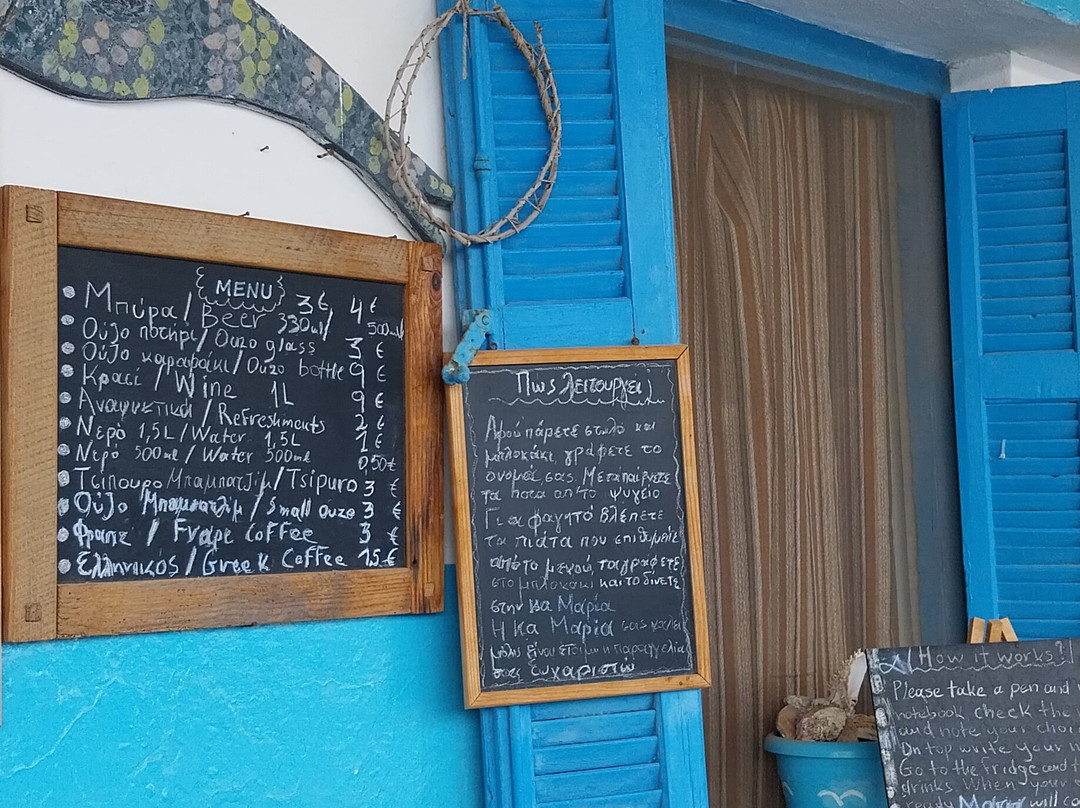 MENU
Μπύρα/Beer 3€ 330ml/ 4€ 500ml
Ούζο ποτήρι/Ouzo glass 3 €
Ούζο καραφάκι/Ouzo bottle 9 €
Κρασί / Wine 1L 9 €
Αναψυκτικά/Refreshments 2 €
Νερό 1,5L/Water 1,5L 1 €
Νερό 500ml/Water 500ml 0,50€
Τσίπουρο Μπαμπατζίμ/Tsipuro 3 €
Ούζο Μπαμπατζίμ/Small ouzo 3 €
Φραπε / Frape Coffee 3 €
Ελληνικός/Greek Coffee 1.5 €
Πως λειτουργεί;
Αφού πάρετε στυλό και
μπλοκάκι, γράφετε το
ονομά σας. Μετα παίρνετε
τα ποτα απ'το ψυγείο
Για φαγητό βλέπετε
τα πιάτα που επιθυμείτε
από το μενού, τα γράφετε
στο μπλοκάκι και το δίνετε
στην κα Μαρία
Η κα Μαρία σας καλεί
μόλις είναι έτοιμη η παραγγελία
σας Ευχαριστώ
How it works?!
Please take a pen and
notebook check the
and note your choi
On top write your n
Go to the fridge and t
drinks. When your
ready Maria will co